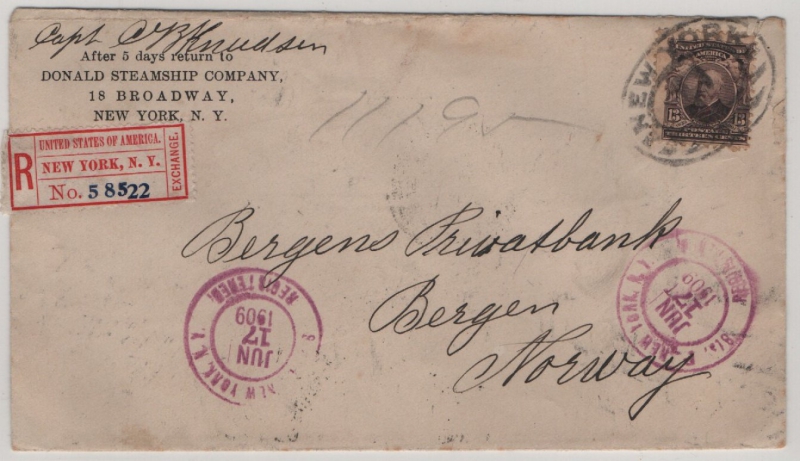 Capt. C B Knudsen
After 5 days return to
DONALD STEAMSHIP COMPANY,
18 BROADWAY,
NEW YORK, N. Y.
R
UNITED STATES OF AMERICA.
NEW YORK, N. Y.
No. 58522
EXCHANGE.
NEW YORK
UNITED STATES
AMERICA
13 13
POSTAGE
THIRTEEN CENTS
11195
Bergens Privatbank
Bergen
Norway
NEW YORK, N. Y.
REGISTERED.
JUN
17
1909
NEW YORK, N. Y.
JUN
17
1909